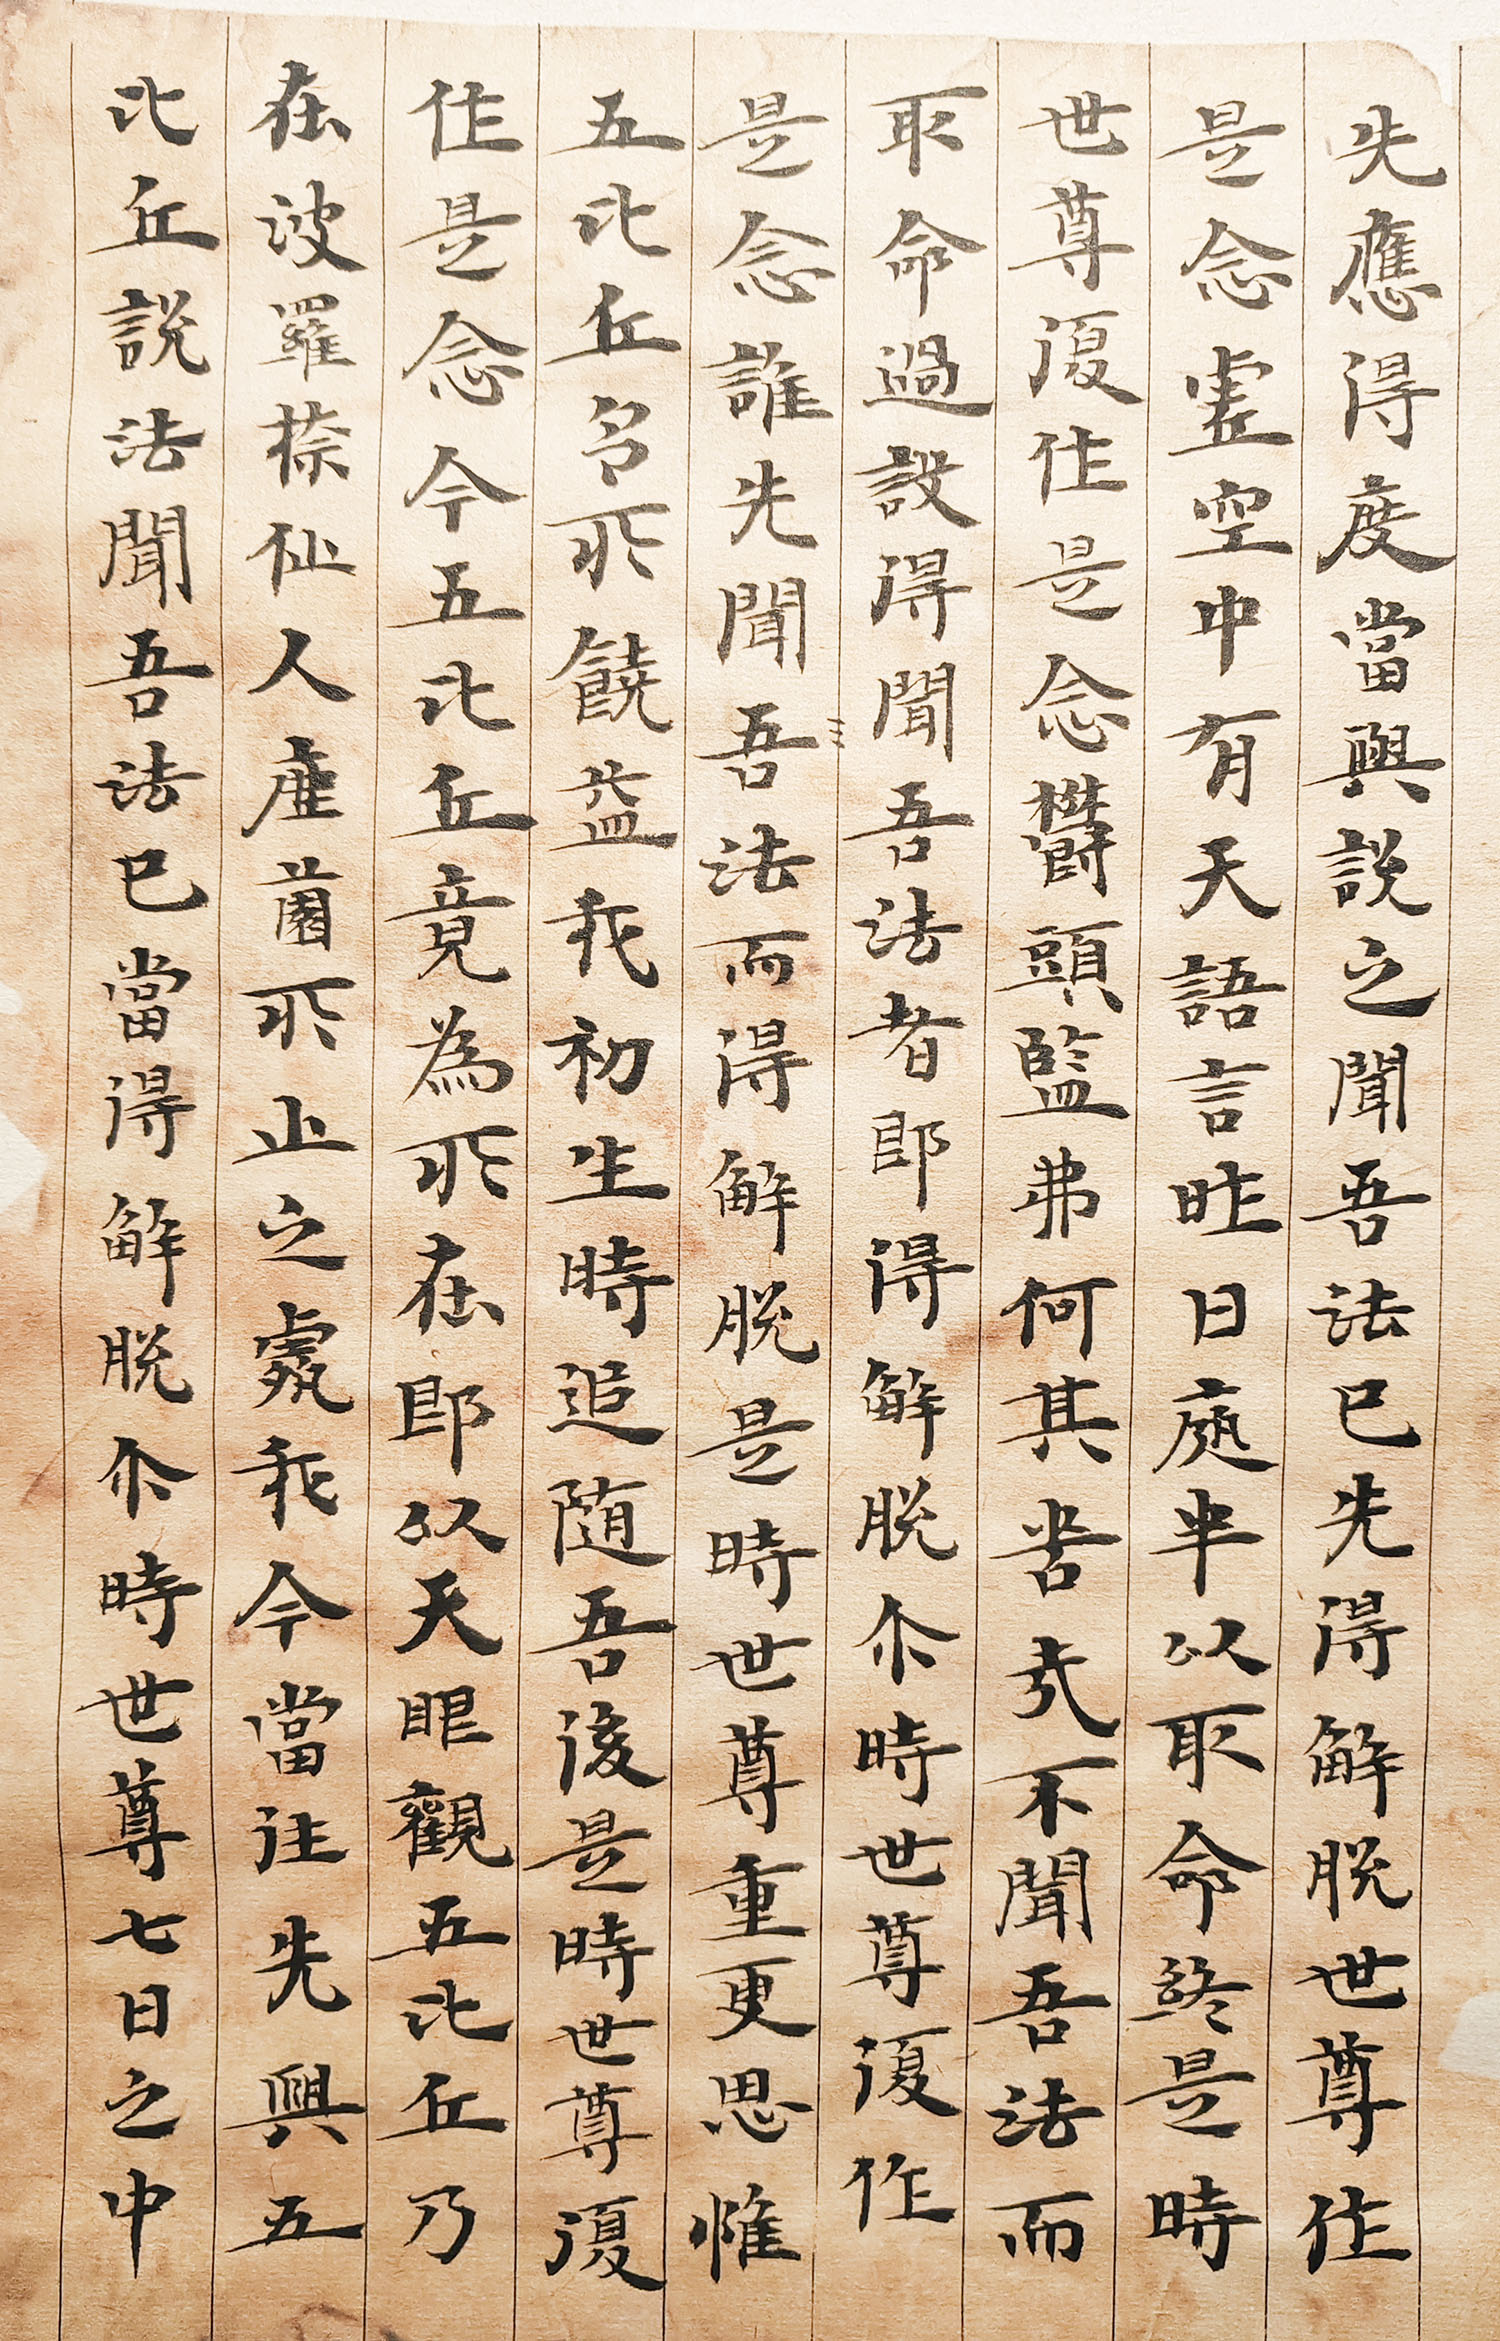 先應得度當與說之聞吾法已先得解脫世尊作
是念虛空中有天語言昨日夜半以取命終是時
世尊復作是念欝頭藍弗何其苦哉不聞吾法而
取命過設得聞吾法者即得解脫尒時世尊復作
是念誰先聞吾法而得解脫是時世尊重更思惟
五比丘多所饒益我初生時追隨吾後是時世尊復
作是念今五比丘竟為所在即以天眼觀五比丘乃
在波羅㮈仙人鹿薗所止之處我今當往先與五
比丘說法聞吾法已當得解脫尒時世尊七日之中